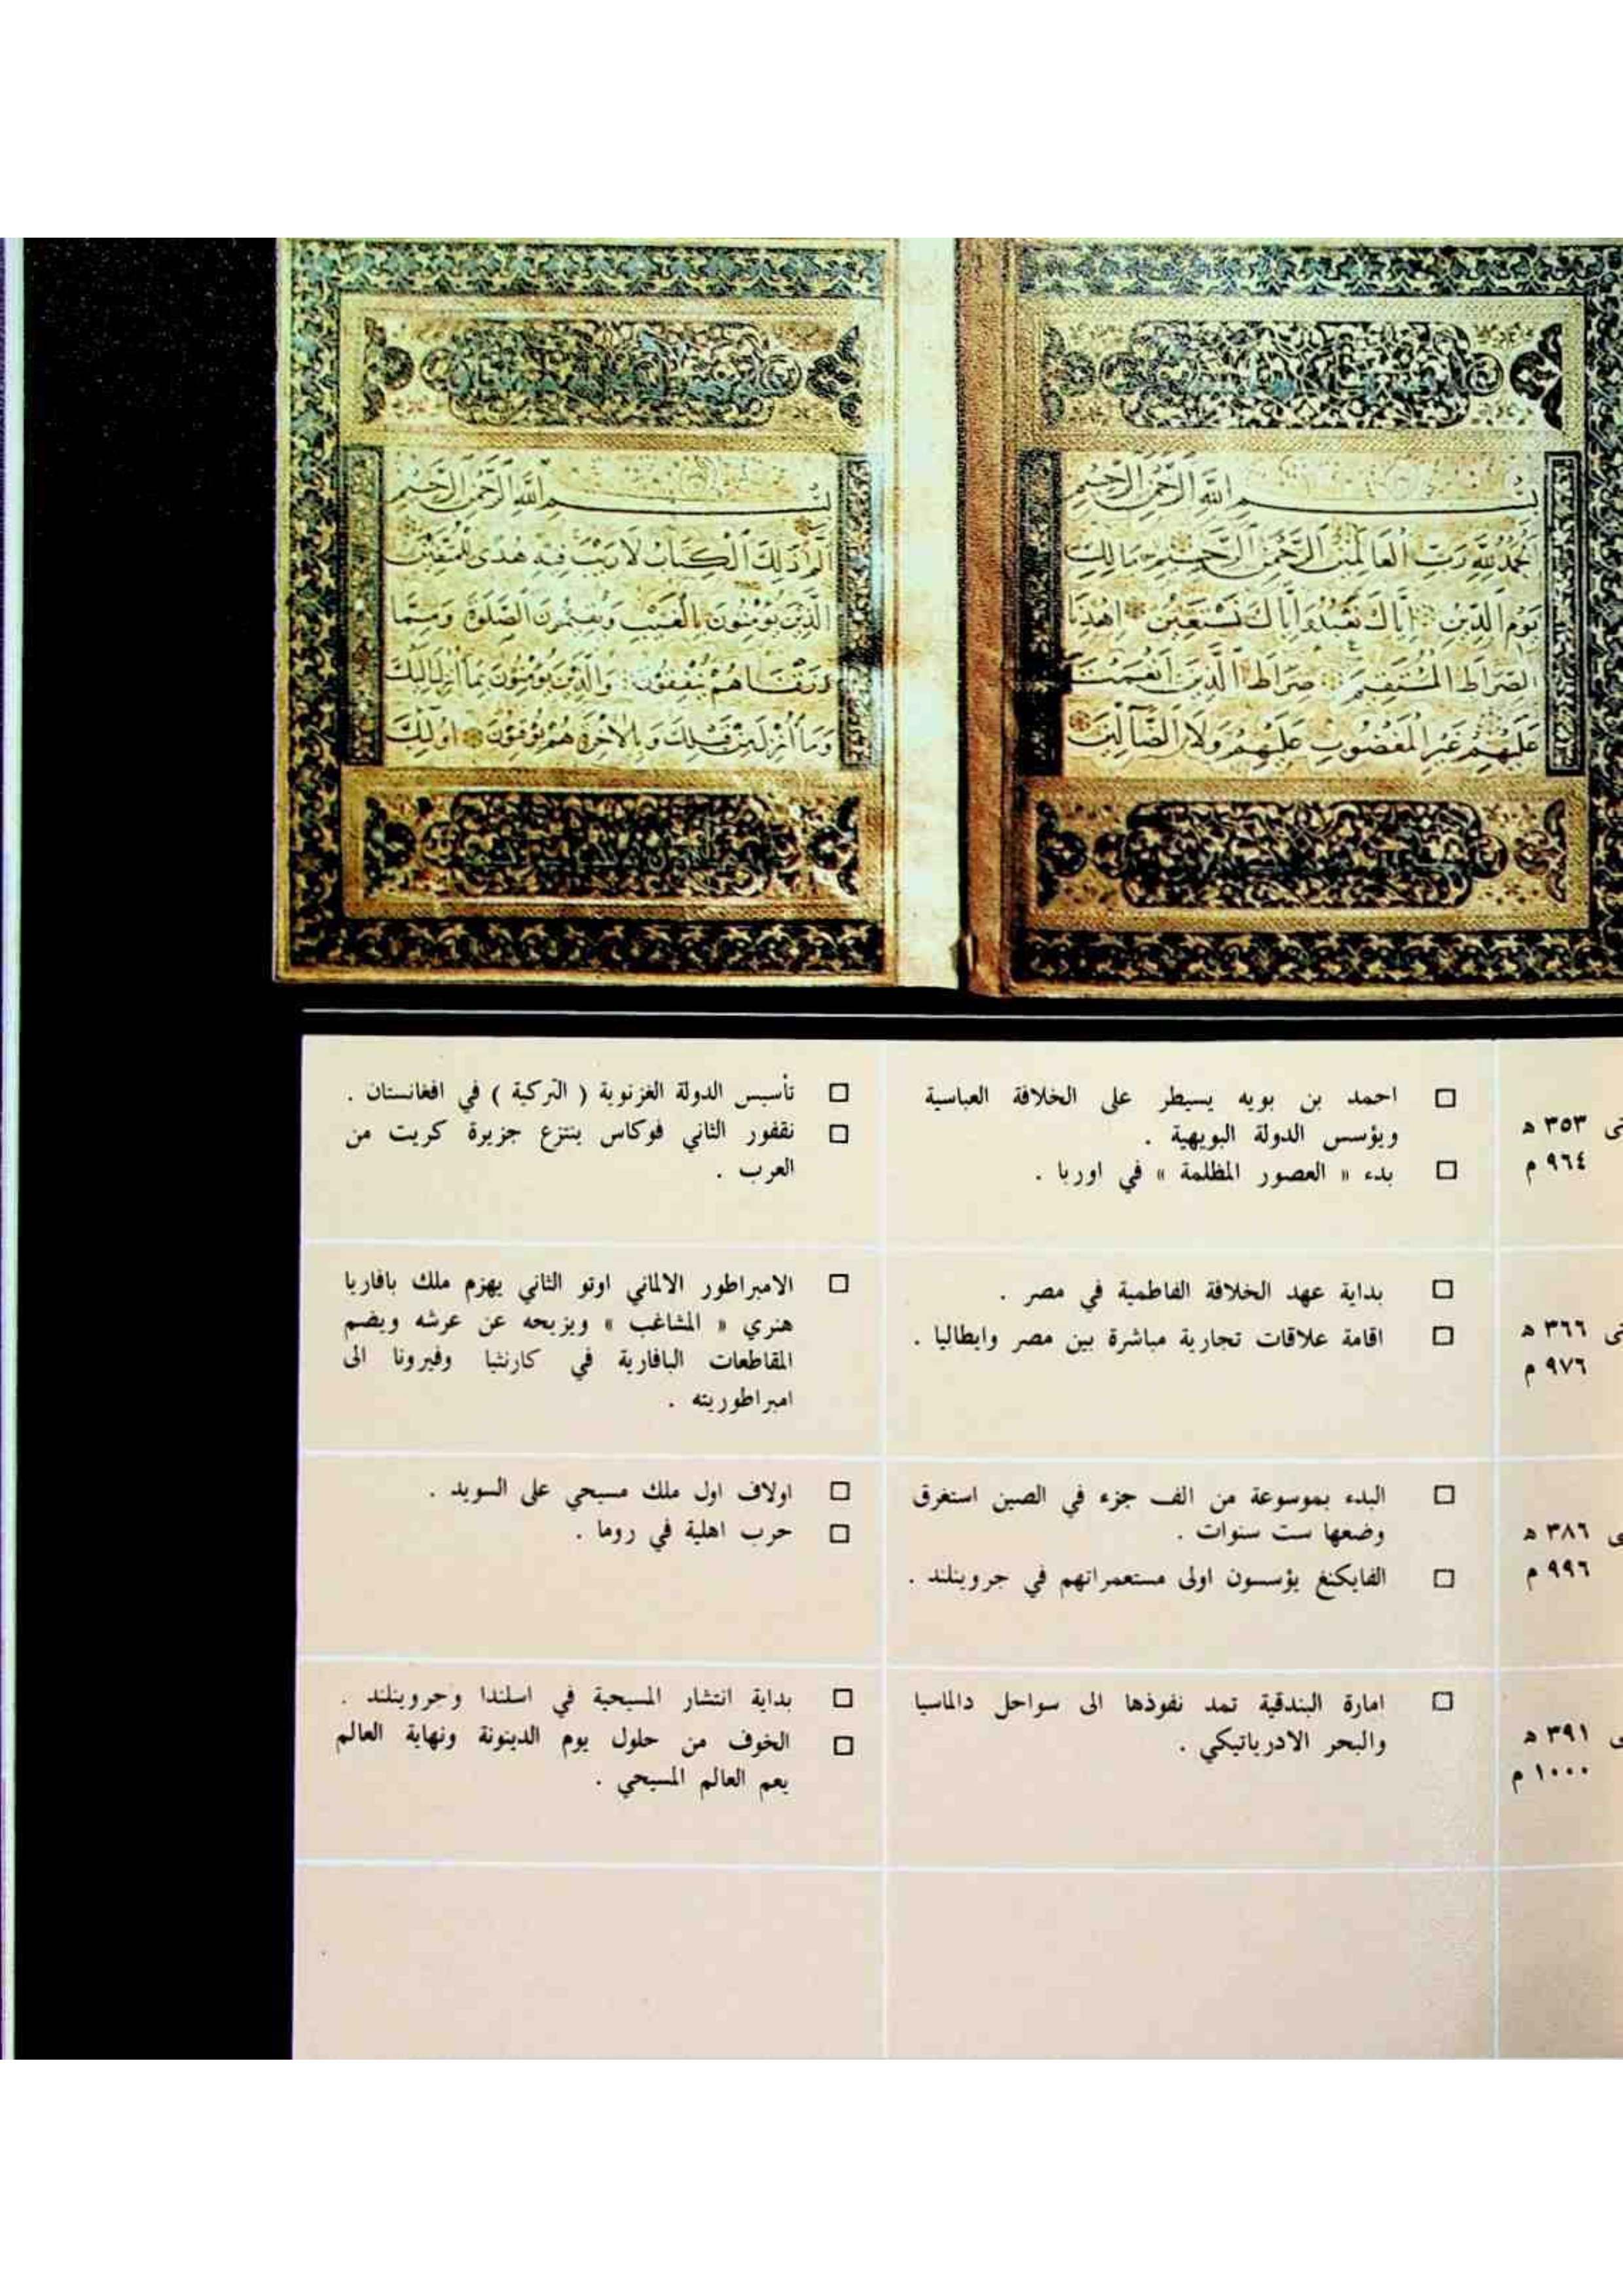 بسم الله الرحمن الرحيم
الحمد لله رب العالمين الرحمن الرحيم مالك
يوم الدين اياك نعبد واياك نستعين اهدنا
الصراط المستقيم صراط الذين انعمت
عليهم غير المغضوب عليهم ولا الضالين
بسم الله الرحمن الرحيم
الم ذلك الكتاب لا ريب فيه هدى للمتقين
الذين يؤمنون بالغيب ويقيمون الصلوة ومما
رزقناهم ينفقون والذين يؤمنون بما انزل اليك
وما انزل من قبلك وبالاخرة هم يوقنون اولئك
٣٥٣ هـ
٩٦٤ م
□ احمد بن بويه يسيطر على الخلافة العباسية
ويؤسس الدولة البويهية .
□ بدء « العصور المظلمة » في اوربا .
□ تأسيس الدولة الغزنوية ( التركية ) في افغانستان .
□ نقفور الثاني فوكاس ينتزع جزيرة كريت من
العرب .
٣٦٦ هـ
٩٧٦ م
□ بداية عهد الخلافة الفاطمية في مصر .
□ اقامة علاقات تجارية مباشرة بين مصر وايطاليا .
□ الامبراطور الالماني اوتو الثاني يهزم ملك بافاريا
هنري « المشاغب » ويزيحه عن عرشه ويضم
المقاطعات البافارية في كارنثيا وفيرونا الى
امبراطوريته .
٣٨٦ هـ
٩٩٦ م
□ البدء بموسوعة من الف جزء في الصين استغرق
وضعها ست سنوات .
□ الفايكنغ يؤسسون اولى مستعمراتهم في جروينلند .
□ اولاف اول ملك مسيحي على السويد .
□ حرب اهلية في روما .
٣٩١ هـ
١٠٠٠ م
□ امارة البندقية تمد نفوذها الى سواحل دالماسيا
والبحر الادرياتيكي .
□ بداية انتشار المسيحية في اسلندا وجروينلند .
□ الخوف من حلول يوم الدينونة ونهاية العالم
يعم العالم المسيحي .